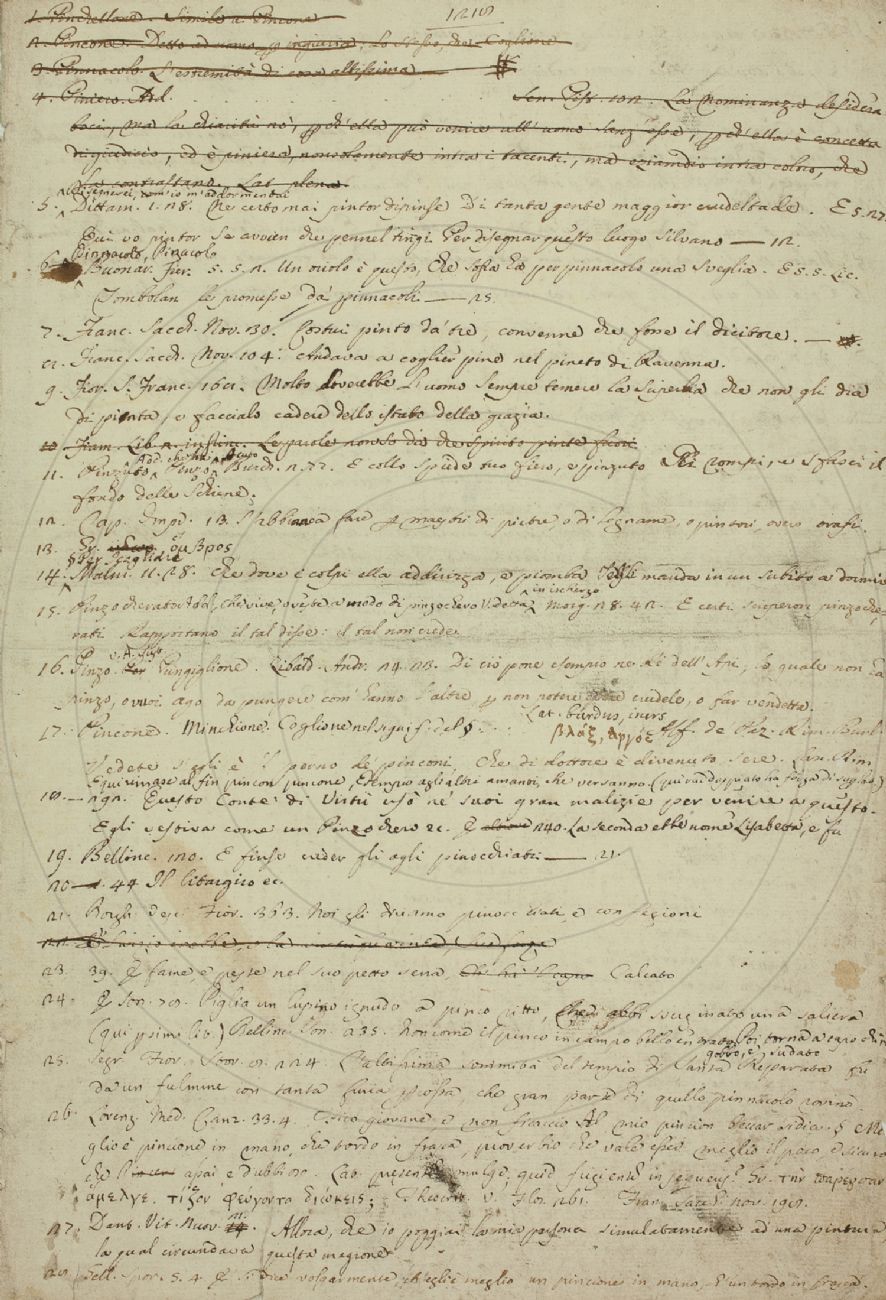 1218
1. Pindellone. Simile a Pincone
2. Pincone. Detto ad uomo p ingiuria, lo stesso, che Coglione
3. Pinnacolo. L'estremità di cosa altissima
4. Piniero. Ad. Sen. Pist. 102. La Nominanza desidera
boci, ma la chiarità nò, p ch'ella può venire all'uomo sanz'esse, p ch'ella è concetta
di giudicio, ed è piniera, non solamente intra i tacenti, ma eziamdio intra coloro, che
la contrastano. Lat. plena.
m'addormentai
5. Dittam. 1. 28. Che certo mai pintor dipinse Di tanta gente maggior crudeltade. E 5. 27.
Qui vo pintor se avvien che pennel tingi Per disegnar questo luogo silvano — 12.
Pinnacolo, Pinacolo
6. Buonar. Fier. 5. 5. 2. Un oriolo è questo, che sofia ha per pinnacolo una sveglia. E 5. 5. Lic.
Tombolan le promesse da' pinnacoli — 25.
7. Franc. Sacch. Nov. 30. Costui pinto da tre, convenne che fosse il dicitore. —
8. Franc. Sacch. Nov. 104. Andava a coglier pine nel pineto di Ravenna.
9. Fior. S. Franc. 168. Molto doverebbe l'uomo sempre temere la superbia che non gli dia
di pinta, e faccialo cadere dello stato della grazia.
10. Fiam. Lib. 2. Le parole non so da che spirito pinte fuori
11. Pinzuto Pinzo Burch. 2. 72. E collo spiede tuo fiero, e pinzuto Mi rompi, e sfasci il
fondo delle schiene.
12. Cap. Impr. 13. S'abbiano a fare p maestri di pietre, o di legname, o pintori, overo orafi.
13. Gr. ομβρος
14. Malm. 11. 28. Che dove è colpi ella addirizza, e piomba Te gli manda in un subito a dormire
in ischerzo
15. Pinzocherato. Ad. che vive, o veste a modo di pinzochero. Vedetta Morg. 28. 42. E certi scapigliati pinzoche-
rati Rapportano il tal disse: il tal non crede
16. Pinzo. Pungiglione. Libr. Andr. 24. 23. Di ciò pone esempio ne Re dell'Api, lo quale non ha
pinzo, o vuoi ago da pungere com'hanno l'altre p non potere esser crudele, o far vendetta.
Lat. burdus, iners
17. Pincone. Minchione. Coglione nel signif. del §. . . βλαξ, αργος Alf. de' Paz. Rim. Burl.
Vedete s'egli è 'l perno de' pinconi, Che di dottore è divenuto sere. Lan. Rim.
E qui rimase al fin pincon pincone, Esempio agli altri amanti, che verranno (qui raddoppiato ha forza di superl.)
18. — 191. Questo Conte di Virtù usò ne' suoi gran malizie per venire a questo.
Egli vestiva come un Pinzochero ec. E 240. La seconda ebbe nome Lisabetta, e fu
19. Bellinc. 120. E finse creder gli agli pinocchiati — 21.
20 — 44 Il litargiro ec.
21. Borgh. Desc. Fior. 363. Noi gli diciamo pinocchiati, e confezioni
23. 39. E fame, e peste nel suo petto serra, Calcato
24. E Son. 78. Piglia un lupino ignudo a pinco ritto, inabo una saliera
(qui p simil.) Bellinc. Son. 235. Non corre il pinco in campo bello Poi torna a capo chin
gobbo, e sudato
25. Segr. Fior. Stor. 8. 224. L'altissima sommità del tempio di Santa Reparata fu
da un fulmine con tanta furia pcossa, che gran parte di quello pinnacolo rovinò
26. Lorenz. Med. Canz. 33. 4. Fico giovane, e non fraccio Al mio pincion beccar si dica. § Me-
glio è pincione in mano, che tordo in frasca, proverbio che vale esser meglio il poco, e sicuro
che l' assai e dubbioso. Lat. presentem mulge, quid fugientem insequeris? Gr. την παρεουσαν
αμελγε. τι τον φευγοντα διωκεις; Theocrit. Flos. 261. Fran. Sacch. nov. 198.
27. Dant. Vit. Nuov. Allora, che io poggiai la mia persona simulatamente ad una pintura
la qual circundava questa magione.
28. Gell. Spor. 5. 4. E si dice volgarmente, ch'egli è meglio un pincione in mano, ch'un tordo in frasca.